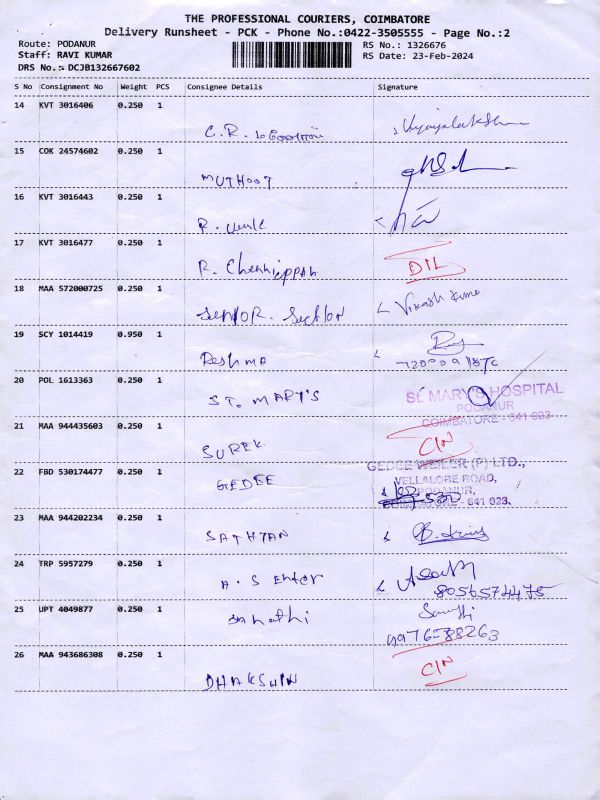 THE PROFESSIONAL COURIERS, COIMBATORE
Delivery Runsheet - PCK - Phone No.:0422-3505555 - Page No.:2
Route: PODANUR
RS No.: 1326676
Staff: RAVI KUMAR
RS Date: 23-Feb-2024
DRS No.:- DCJB132667602
S No Consignment No Weight PCS Consignee Details Signature
14 KVT 3016406 0.250 1
C.R.
15 COK 24574602 0.250 1
MUTHOOT
16 KVT 3016443 0.250 1
R.
17 KVT 3016477 0.250 1
R. Chenniappan
DIL
18 MAA 572000725 0.250 1
Senior. Section
Vikash Kumar
19 SCY 1014419 0.950 1
Reshma
20 POL 1613363 0.250 1
ST. MARY'S
St. MARY'S HOSPITAL
PODANUR
COIMBATORE - 641 023
21 MAA 944435603 0.250 1
SUREK
CIN
22 FBD 530174477 0.250 1
GEDEE
GEDEE WEILER (P) LTD.,
VELLALORE ROAD,
PODANUR,
COIMBATORE - 641 023.
23 MAA 944202234 0.250 1
SATHYAN
24 TRP 5957279 0.250 1
A. S Enter
8056574475
25 UPT 4049877 0.250 1
26 MAA 943686308 0.250 1
DHAKSHIN
CIN